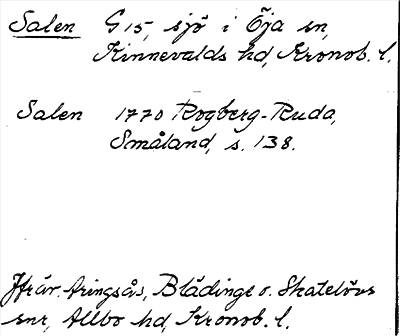 Salen G 15, sjö i Öja sn,
Kinnevalds hd, Kronob. l.
Salen 1770 Rogberg-Ruda,
Småland, s. 138.
Jfr äv. Aringsås, Blädinge o. Skatelövs
snr, Allbo hd, Kronob. l.